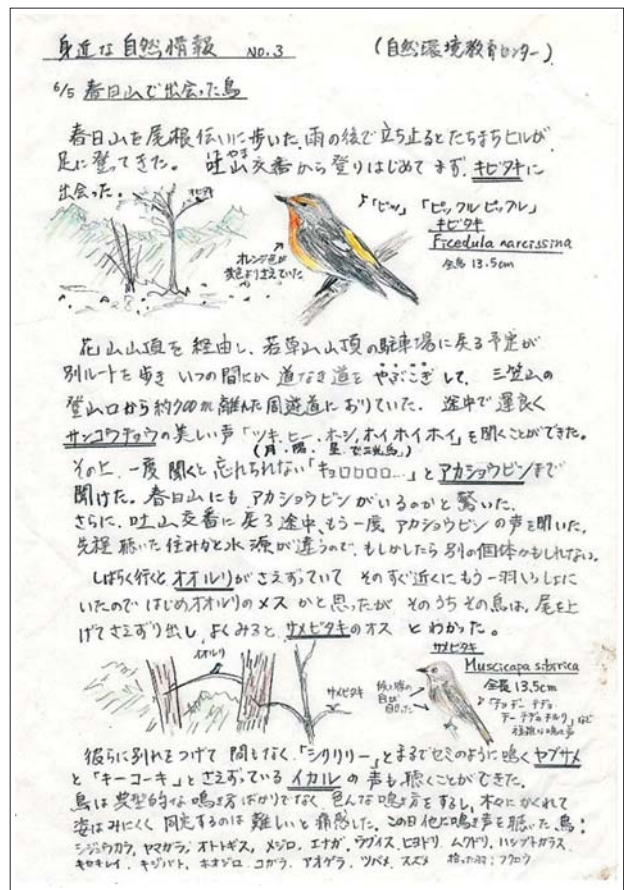 身近な自然情報 NO.3 (自然環境教育センター)
6/5 春日山で出会った鳥
春日山を尾根伝いに歩いた。雨の後で立ち止るとたちまちヒルが
足に登ってきた。 吐山交番から登りはじめてまず、キビタキに
はきやま
出会った。
キビタキ
♪「ピッ」「ピックル ピックル」
キビタキ
Ficedula narcissina
全長 13.5cm
オレンジ色が
黄色よりさえていた
花山山頂を経由し、若草山山頂の駐車場に戻る予定が
別ルートを歩き いつの間にか 道なき道を やぶこぎ して、三笠山の
登山口から約700m離れた周遊道におりていた。 途中で運良く
サンコウチョウの美しい声「ツキ、ヒー、ホーシ、ホイ ホイ ホイ」を聞くことができた。
(月・陽・星 で三光鳥)
その上、一度聞くと、忘れられない「キョロロロロ…」とアカショウビンまで
聞けた。春日山にも アカショウビンがいるのかと驚いた。
さらに、吐山交番に戻る途中、もう一度、アカショウビンの声を聞いた。
先程聴いた住みかと水源が違うので、もしかしたら別の個体かもしれない。
しばらく行くとオオルリがさえずっていて そのすぐ近くにもう一羽いっしょに
いたので はじめオオルリのメス かと思ったが そのうちその鳥は、尾を上
げてさえずり出し、よくみると、サメビタキのオス とわかった。
オオルリ
サメビタキ
サメビタキ
Muscicapa sibirica
全長 13.5cm
目立った
複雑な鳴き声
彼らに別れをつげて 間もなく「シリリリー」とまるでセミのように鳴くヤブサメ
と「キーコーキ」とさえずっているイカルの声も聴くことができた。
鳥は典型的な鳴き方ばかりでなく色んな鳴き方をするし、木々にかくれて
姿はみにくく 同定するのは 難しいと痛感した。この日他に鳴き声を聴いた鳥:
シジュウカラ、ヤマガラ、ホトトギス、メジロ、エナガ、ウグイス、ヒヨドリ、ムクドリ、ハシブトガラス
キセキレイ、キジバト、ホオジロ、コガラ、アオゲラ、ツバメ、スズメ 拾った羽:フクロウ